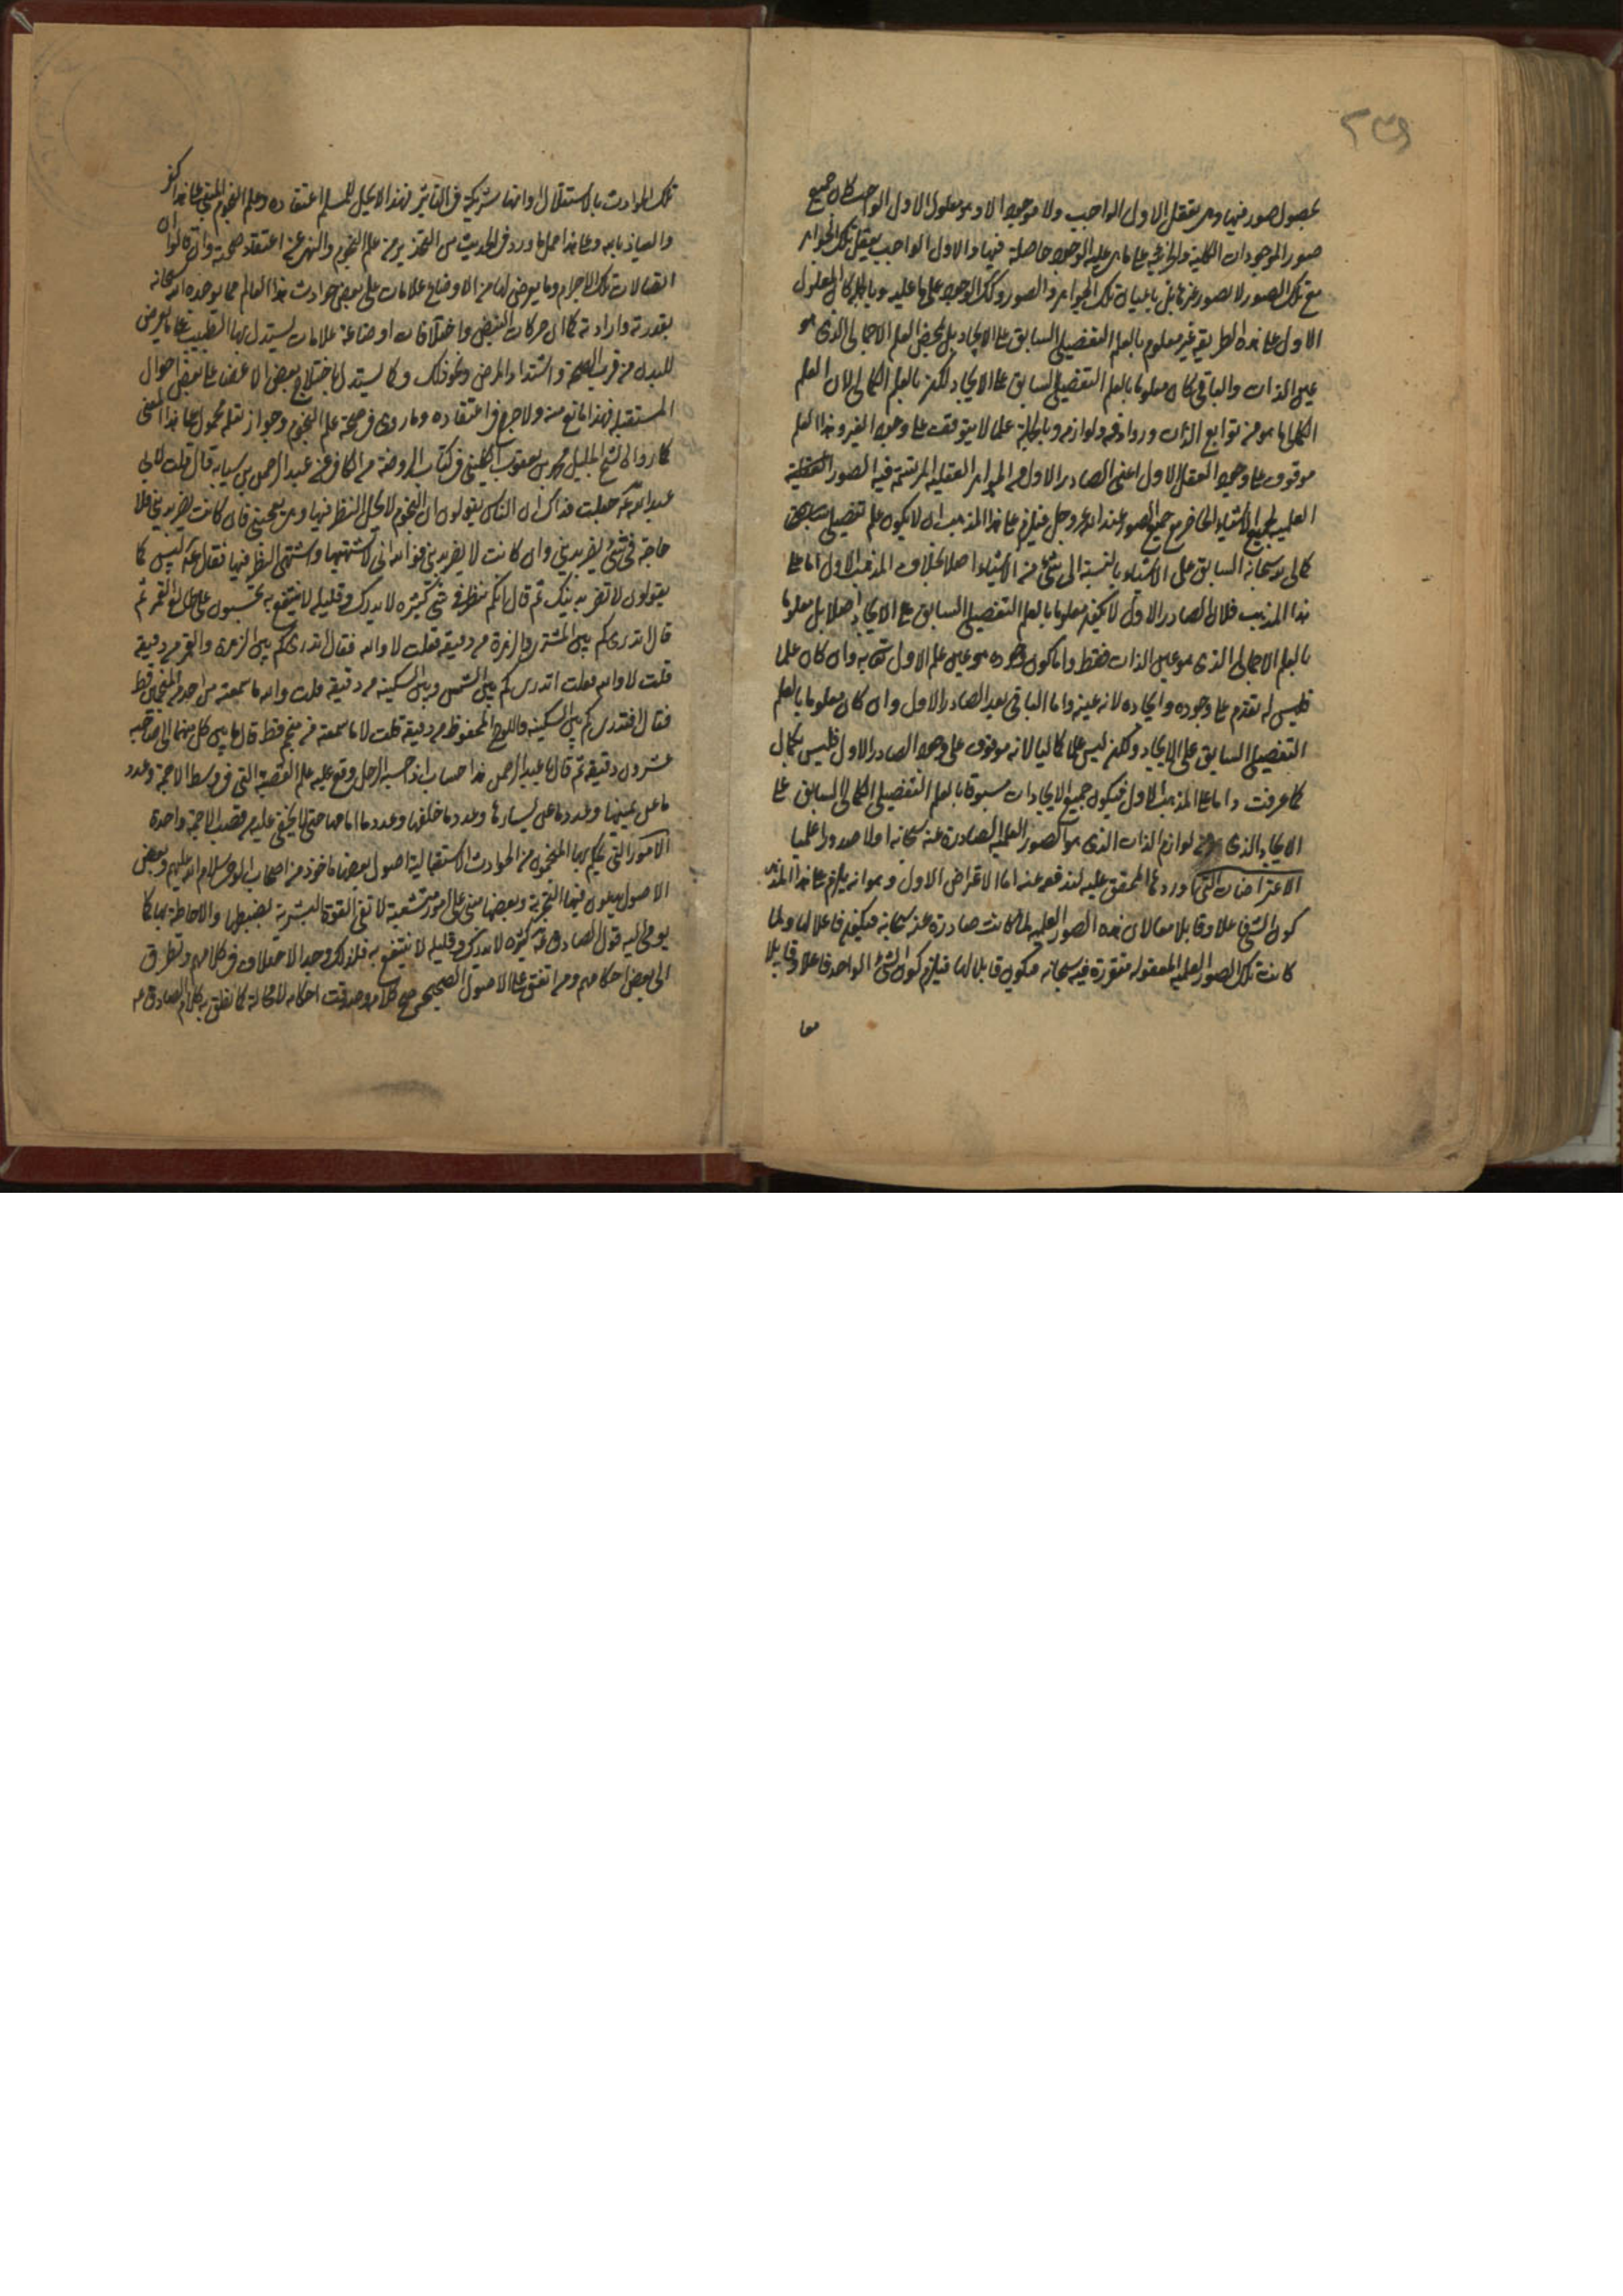 ٢٣٩
بحصول صور فيها وهى تعقل الاول الواجب ولا موجود الا وهو معلول الاول الواجب كان جميع
صور الموجودات الكلية والجزئية على ما هى عليه الوجود حاصلة فيها والاول الواجب يعقل تلك الجواهر
مع تلك الصور لا بصور غيرها بل باعيان تلك الجواهر والصور وكك الوجود على ما عليه وبالجملة كان المعلول
الاول على هذه الطريقة غير معلوم بالعلم التفصيلى السابق على الايجاد بل بمحض العلم الاجمالى الذى هو
عين الذات والباقى كان معلوما بالعلم التفصيلى السابق على الايجاد لكن بالعلم الكمالى لان العلم
الكمالى ما هو من توابع الذات وروادفه ولوازمه وبالجملة علما لا يتوقف على وجود الغير وهذا العلم
موقوف على وجود العقل الاول اعنى الصادر الاول من الجواهر العقلية المرتسمة فيه الصور العقلية
العلمية لجميع الاشياء الحاضر مع جميع الصور عند الله عز وجل فيلزم على هذا المذهب ان لا يكون علم تفصيلى
كمالى به سبحانه السابق على الاشياء بالنسبة الى شئ من الاشياء اصلا بخلاف المذهب الاول اما على
هذا المذهب فلان الصادر الاول لا يكون معلوما بالعلم التفصيلى السابق على الايجاد اصلا بل معلوما
بالعلم الاجمالى الذى هو عين الذات فقط واما كون وجوده هو عين علم الاول تعالى به وان كان علما
فليس له تقدم على وجوده وايجاده لانه عينه واما الباقى بعد الصادر الاول وان كان معلوما بالعلم
التفصيلى السابق على الايجاد ولكنه ليس علما كماليا لانه موقوف على وجود الصادر الاول فليس بكمال
كما عرفت واما على المذهب الاول فيكون جميع الايجادات مسبوقا بالعلم التفصيلى الكمالى السابق على
الايجاد الذى هو من لوازم الذات الذى هو الصور العلمية الصادرة عنه سبحانه اولا صدورا علميا
الاعتراضات التى اوردها المحقق عليه لندفعه عنه اما الاعتراض الاول وهو انه يلزم على هذا المذهب
كون الشئ فاعلا وقابلا معا لان هذه الصور العلمية لما كانت صادرة عنه سبحانه فيكون فاعلا لها ولما
كانت تلك الصور العلمية المعقولة متقررة فيه سبحانه فيكون قابلا لها فيلزم كون الشئ الواحد فاعلا وقابلا
معا
تلك الحوادث بالاستقلال او انها شريكة فى التاثير فهذا لا يحل للمسلم اعتقاده وعلم النجوم المبنى على هذا كفر
والعياذ بالله وعلى هذا حمل ما ورد فى الحديث من التحذير من علم النجوم والنهى عن اعتقاد صحته وان قالوا ان
اتصالات تلك الاجرام وما يعرض لها من الاوضاع علامات على بعض حوادث هذا العالم مما يوجده الله سبحانه
بقدرته وارادته كما ان حركات النبض واختلافات اوضاعه علامات يستدل بها الطبيب على ما يعرض
للبدن من قرب الصحة واشتداد المرض ونحو ذلك وكما يستدل باختلاج بعض الاعضاء على بعض احوال
المستقبلة فهذا لا مانع منه ولا حرج فى اعتقاده وما روى فى صحة علم النجوم وجواز تعلمه محمول على هذا المعنى
كما روى الشيخ الجليل محمد بن يعقوب الكلينى فى كتاب الروضة من الكافى عن عبد الرحمن بن سيابه قال قلت لابى
عبد الله ع جعلت فداك ان الناس يقولون ان النجوم لا يحل النظر فيها وهى تعجبنى فان كانت تضر بدينى فلا
حاجة فى شئ يضر بدينى وان كانت لا تضر بدينى فوالله انى لاشتهيها واشتهى النظر فيها فقال ع ليس كما
يقولون لا تضر بدينك ثم قال انكم تنظرون فى شئ كثيره لا يدرك وقليله لا ينتفع به تحسبون على طالع القمر ثم
قال اتدرى كم بين المشترى والزهرة من دقيقة فقلت لا والله فقال اتدرى كم بين الزهرة والقمر من دقيقة
قلت لا والله فقلت اتدرى كم بين الشمس وبين السكينة من دقيقة قلت والله ما سمعته من احد من المنجمين قط
فقال افتدرى كم بين السكينة واللوح المحفوظ من دقيقة قلت لا ما سمعته من منجم قط قال ما بين كل منهما الى صاحبه
عشرون دقيقة ثم قال يا عبد الرحمن هذا حساب اذا حسبه الرجل ووقع عليه علم القصبة التى فى وسط الاجمة وعدد
ما عن يمينها وعدد ما عن يسارها وعدد ما خلفها وعدد ما امامها حتى لا يخفى عليه من قصب الاجمة واحدة
الامور التى يحكم بها المنجمون من الحوادث الاستقبالية اصول بعضها ماخوذ من اصحاب الوحى سلام الله عليهم وبعض
الاصول يدعون فيها التجربة وبعضها مبتن على امور متشعبة لا تفى القوة البشرية بضبطها والاحاطة بها كما
يومى اليه قول الصادق ع كثيره لا يدرك وقليله لا ينتفع به فلذلك وجد الاختلاف فى كلامهم وتطرق
الى بعض احكامهم ومن اتفق على الاصول الصحيحة صح كلامه وصدقت احكامه لا محالة كما نطق به كلام الصادق ع